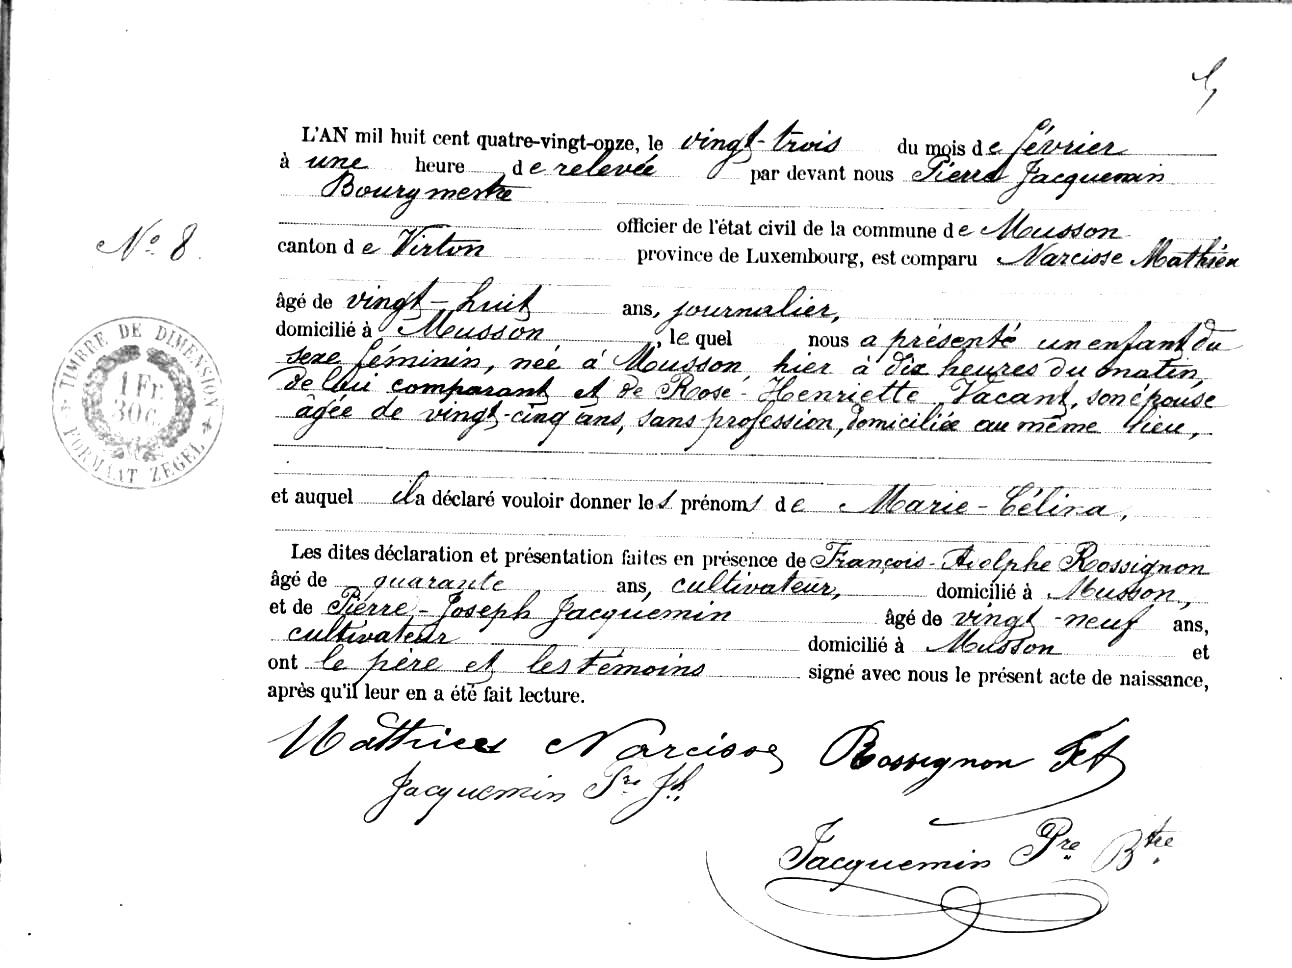 5
L'AN mil huit cent quatre-vingt-onze, le vingt-trois du mois de février
à une heure de relevée par devant nous Pierre Jacquemin
Bourgmestre
officier de l'état civil de la commune de Musson
N° 8.
canton de Virton province de Luxembourg, est comparu Narcisse Mathieu
âgé de vingt-huit ans, journalier,
domicilié à Musson, le quel nous a présenté un enfant du
sexe féminin, née à Musson, hier à dix heures du matin,
de lui comparant et de Rose-Henriette Vacant, son épouse
âgée de vingt-cinq ans, sans profession, domiciliée au même lieu,
TIMBRE DE DIMENSION
1 Fr
30 C.
FORMAAT ZEGEL
et auquel il a déclaré vouloir donner les prénoms de Marie-Célina,
Les dites déclaration et présentation faites en présence de François-Adolphe Rossignon
âgé de quarante ans, cultivateur, domicilié à Musson,
et de Pierre-Joseph Jacquemin âgé de vingt-neuf ans,
cultivateur domicilié à Musson et
ont le père et les témoins signé avec nous le présent acte de naissance,
après qu'il leur en a été fait lecture.
Mathieu Narcisse Rossignon
Jacquemin Pre Jh.
Jacquemin Pre Btre